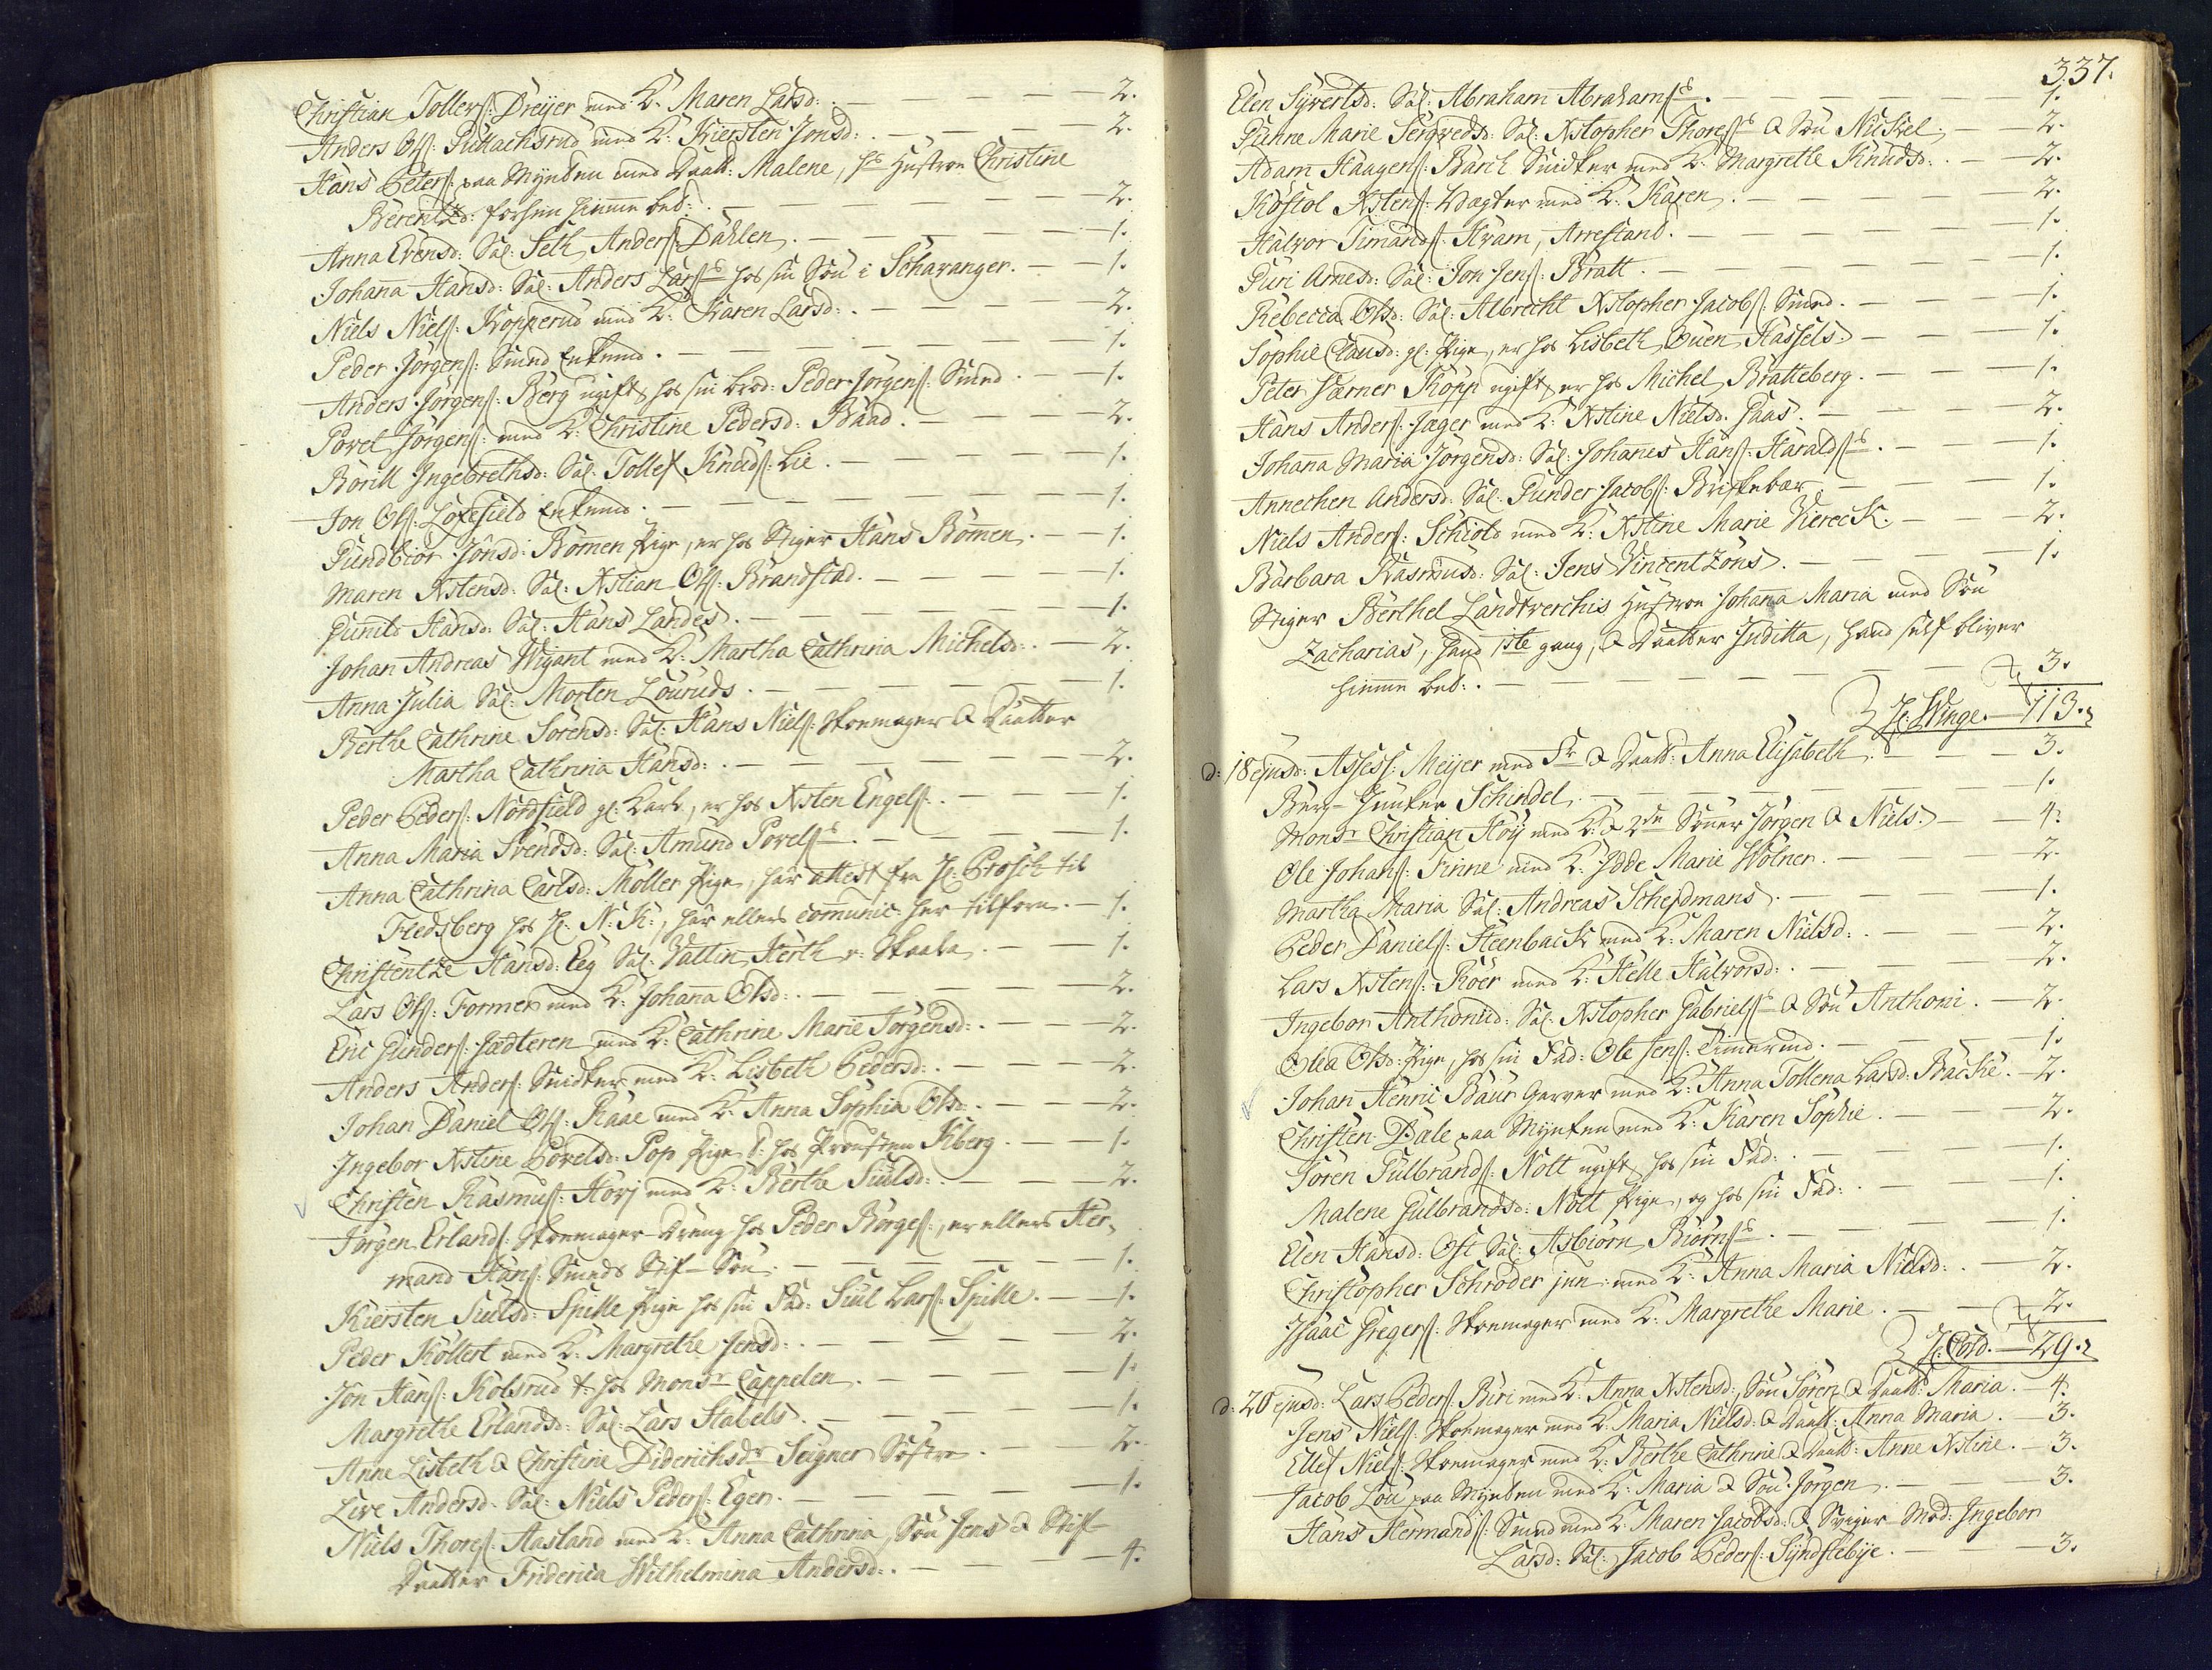 Christian Tollefs: Dreyer med K: Maren Larsd: — 2.
Anders Ols: Gullachsrud med K: Kiersten Jonsd: — 2.
Hans Peters: paa Mynten med Daatt: Malene, hs Hustroe Christine
Berentzd: forhen hiemme bed: — 2.
Anna Evensd: Sal: Seth Anders: Dahlen. — 1.
Johana Hansd: Sal: Anders Lars: hos sin Søn i Schavanger. — 1.
Niels Niels: Kopperud med K: Karen Larsd: — 2.
Peder Jørgens: Smed Enkemd. — 1.
Anders Jørgens: Berg ugift, hos sin brod: Peder Jørgens: Smed. — 1.
Povel Jørgens: med K: Christine Pedersd: Baad. — 2.
Børill Ingebrethsd: Sal: Tollef Knuds: Lie. — 1.
Jon Ols: Løfefield Enkemd. — 1.
Gundbiør Jonsd: Bømen Pige, er hos Stiger Hans Bømen. — 1.
Maren Xstensd: Sal: Xstian Ols: Brandstad. — 1.
Gunild Hansd: Sal: Hans Landes. — 1.
Johan Andreas Wigant med K: Martha Cathrina Michelsd: — 2.
Anna Julia Sal: Morten Louruds. — 1.
Berthe Cathrine Sørensd: Sal: Hans Niels: Skoemager & Daatter
Martha Cathrina Hansd: — 2.
Peder Peders: Nordfield gl: Karl, er hos Xsten Engels: — 1.
Anna Maria Svendsd: Sal: Amund Povels: — 1.
Anna Cathrina Carlsd: Møller Pige, har attest fra H: Brosch til
Fredsberg hos H: N: K:, har ellers com̄unic: her tilforn. — 1.
Christentze Hansd: Eeg Sal: Vallin Herth v: Skaala. — 1.
Lars Ols: Former med K: Johana Olsd: — 2.
Eric Gunders: Sædteren med K: Cathrine Marie Jørgensd: — 2.
Anders Anders: Snidker med K: Lisbeth Pedersd: — 2.
Johan Daniel Ols: Raae med K: Anna Sophia Olsd: — 2.
Ingebor Xstine Povelsd: Pop Pige t: hos Provsten Kberg. — 1.
Christen Rasmus: Hørj med K: Berthe Siulsd: — 2.
Jørgen Erlands: Skoemager-Dreng hos Peder Børges:, er ellers Her-
mand Hans: Smeds Stif-Søn. — 1.
Kiersten Siulsd: Spille Pige hos sin Fad: Siul Lars: Spille. — 1.
Peder Kollert med K: Margrethe Jensd: — 2.
Jon Hans: Kolsrud t: hos Monsr Cappelen. — 1.
Margrethe Erlandsd: Sal: Lars Stabels. — 1.
Anne Lisbeth & Christine Diderichsdr Seigner Søstre. — 2.
Live Andersd: Sal: Niels Peders: Egen. — 1.
Niels Thores: Aasland med K: Anna Cathrina, Søn Jens & Stif-
Daatter Friderica Wilhelmina Andersd: — 4.
337.
Elen Syvertsd: Sal: Abraham Abrahams: — 1.
Gunne Marie Sergredsd: Sal: Xstopher Thores: & Søn Nickel. — 2.
Adam Haagens: Barch Snidker med K: Margrethe Knudsd: — 2.
Kostol Xstens: Vægter med K: Karen. — 2.
Halvor Simands: Kram, Arrestand. — 1.
Guri Arnesd: Sal: Jon Jens: Bratt. — 1.
Rebecca Olsd: Sal: Albrecht Xstopher Jacobs: Smed. — 1.
Sophie Clausd: gl: Pige, er hos Lisbeth Ouen Hassels. — 1.
Peter Værner Kopp ugift, er hos Michel Bratteberg. — 1.
Hans Anders: Jæger med K: Xstine Nielsd: Gaas. — 2.
Johana Maria Jørgensd: Sal: Johanes Hans: Haralds: — 1.
Annechen Andersd: Sal: Gunder Jacobs: Briskebær. — 1.
Niels Anders: Schiold med K: Xstine Marie Viereck. — 2.
Barbara Rasmusd: Sal: Jens Vincentzøns. — 1.
Stiger Berthel Landtverchis Hustroe Johana Maria med Søn
Zacharias, hand 1ste gang, & Daatter Juditta, hand self bliver
hiemme bed: — 3.
H: Winge. — 113.
d: 18 ejusd: Assess: Meijer med Fr & Daatt: Anna Elisabeth. — 3.
Berg-Junker Schindel. — 1.
Monsr Christian Høy med K: & 2de Sønner Jørgen & Niels. — 4.
Ole Johans: Finne med K: Idde Marie Wølner. — 2.
Martha Maria Sal: Andreas Scheidmans. — 1.
Peder Daniels: Steenback med K: Maren Nielsd: — 2.
Lars Xstens: Koer med K: Helle Halvorsd: — 2.
Ingebor Anthonisd: Sal: Xstopher Gabriels: & Søn Anthoni. — 2.
Olia Olsd: Pige, hos sin Fad: Ole Jens: Timermd. — 1.
Johan Henric Baur Garver med K: Anna Tollena Larsd: Backe. — 2.
Christen Dale paa Mynten med K: Karen Sophie. — 2.
Søren Gulbrands: Nøtt ugift, hos sin Fad: — 1.
Malene Gulbrandsd: Nøtt Pige, og hos sin Fad: — 1.
Elen Hansd: Ost Sal: Asbiørn Biørns: — 1.
Christopher Schrøder jun: med K: Anna Maria Nielsd: — 2.
Isaac Gregers: Skoemager med K: Margrethe Marie. — 2.
H: Cold. — 29.
d: 20 ejusd: Lars Peders: Biri med K: Anna Xstensd:, Søn Søren & Daatt: Maria. — 4.
Jens Niels: Skoemager med K: Maria Nielsd: & Daatt: Anna Maria. — 3.
Ellef Niels: Skoemager med K: Berthe Cathrina & Daatt: Anne Xstine. — 3.
Jacob Lou paa Mynten med K: Maria & Søn Jørgen. — 3.
Hans Hermands: Smed med K: Maren Jacobsd: & Sviger-Mod: Ingebor
Larsd: Sal: Jacob Peders: Syndstebye. — 3.